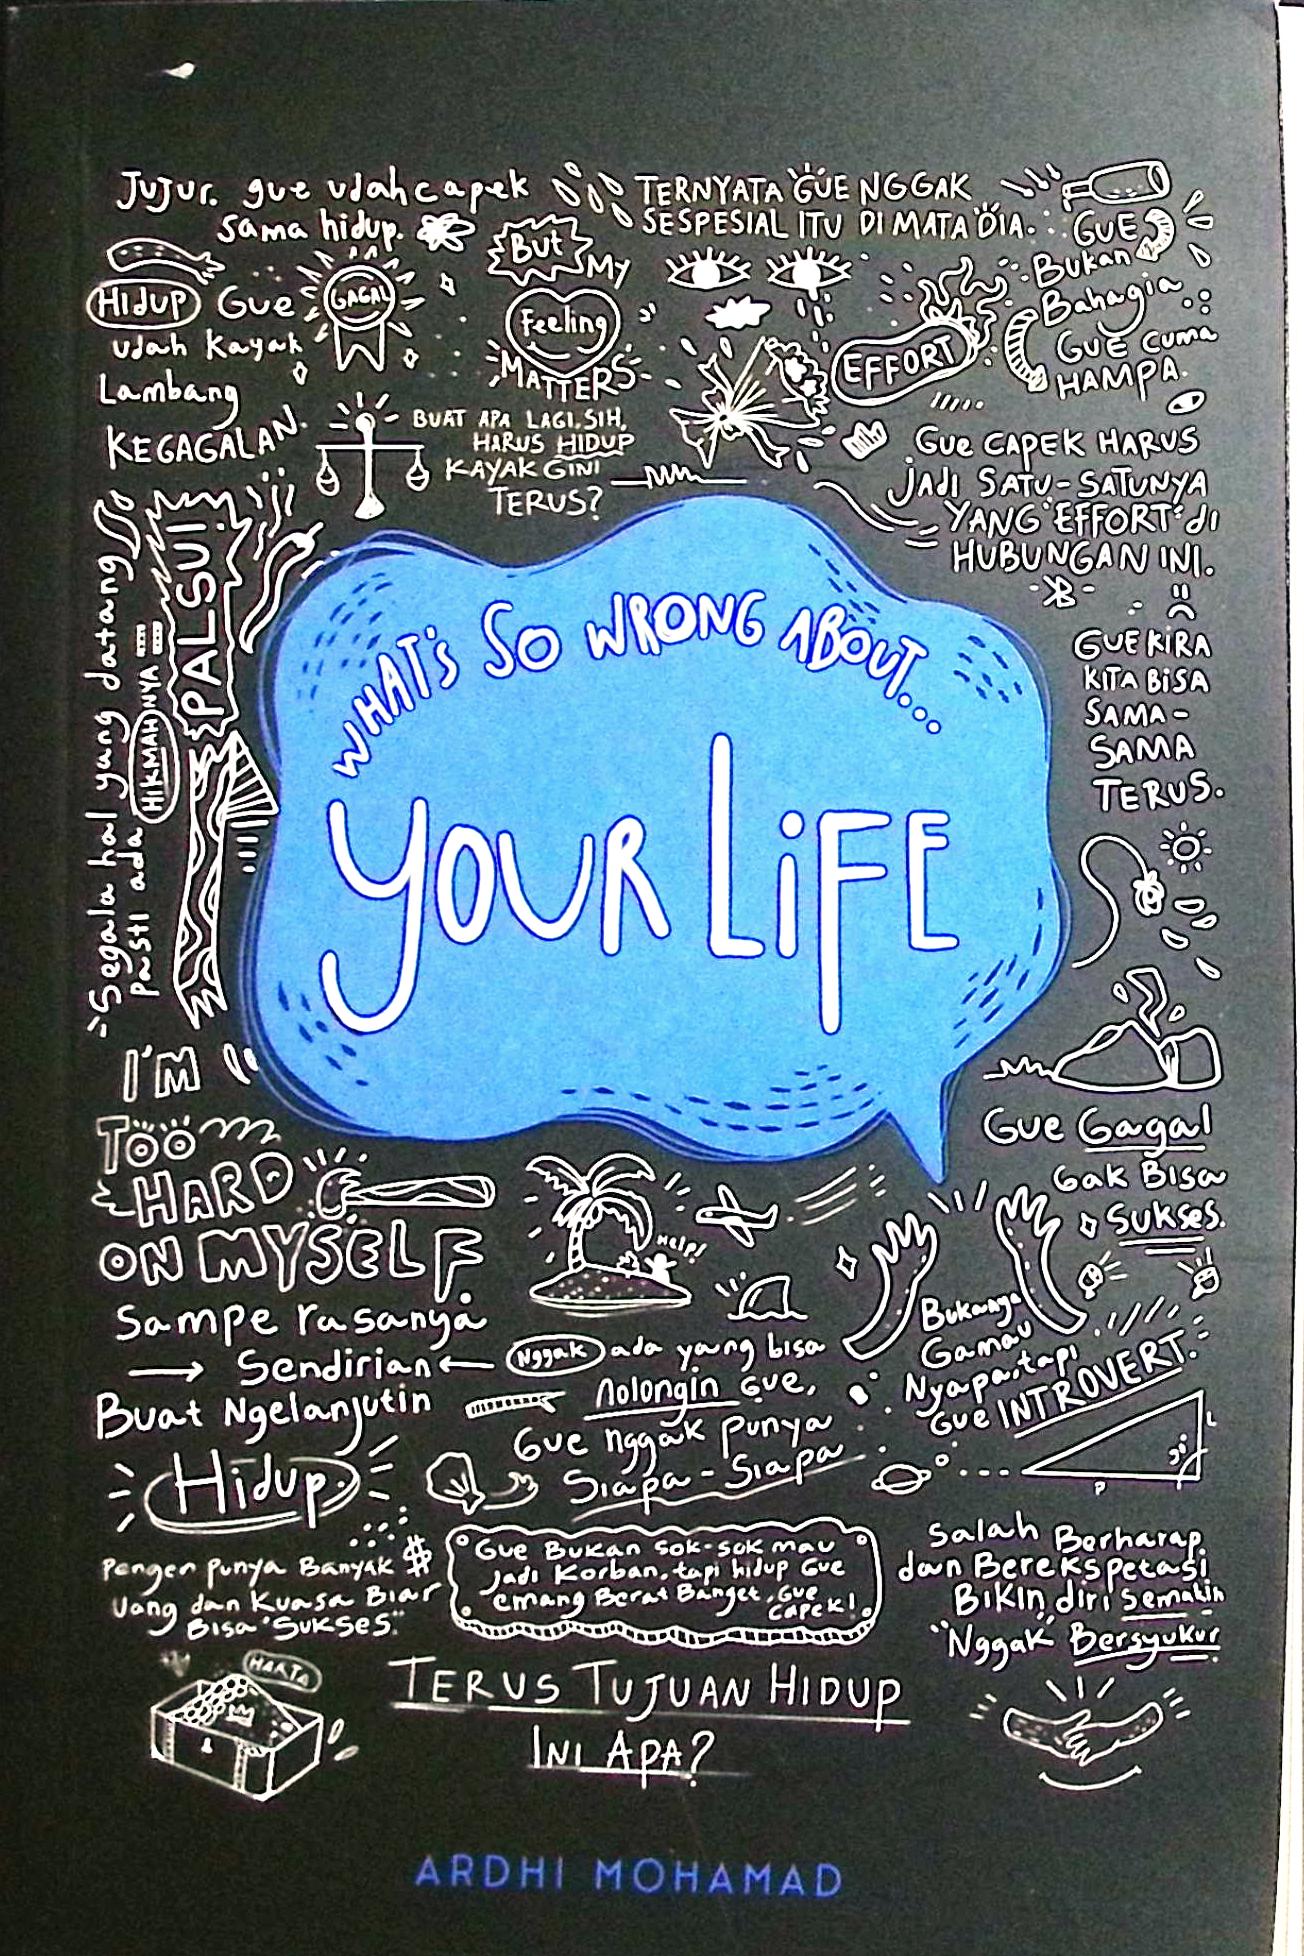 Jujur. gue udah capek
sama hidup.
TERNYATA GUE NGGAK
SESPESIAL ITU DI MATA DIA.
But
My
Feeling
MATTERS
HIDUP Gue
udah kayak
Lambang
KEGAGALAN.
GAGAL
EFFORT
GUE
Bukan
Bahagia.
GUE cuma
HAMPA.
BUAT APA LAGI, SIH,
HARUS HIDUP
KAYAK GINI
TERUS?
Gue CAPEK HARUS
JADI SATU-SATUNYA
YANG "EFFORT" di
HUBUNGAN INI.
"Segala hal yang datang
pasti ada HIKMAHNYA"
PALSU!
WHAT'S SO WRONG ABOUT...
YOUR LIFE
GUE KIRA
KITA BISA
SAMA-
SAMA
TERUS.
I'M
TOO
HARD
ON MYSELF.
Sampe rasanya
Sendirian
Buat Ngelanjutin
Hidup.
Help!
Gue Gagal
Gak Bisa
Sukses.
Nggak ada yang bisa
nolongin Gue,
Gue nggak punya
Siapa-Siapa
Bukannya
Gamau
Nyapa, tapi
Gue INTROVERT.
Pengen punya Banyak $
Uang dan Kuasa Biar
Bisa "SUKSES."
Gue Bukan sok-sok mau
Jadi Korban, tapi hidup Gue
emang Berat Banget, Gue
capek!
Salah Berharap
dan Berekspetasi
BIKIN diri Semakin
"Nggak" Bersyukur
HARTA
TERUS TUJUAN HIDUP
INI APA?
ARDHI MOHAMAD